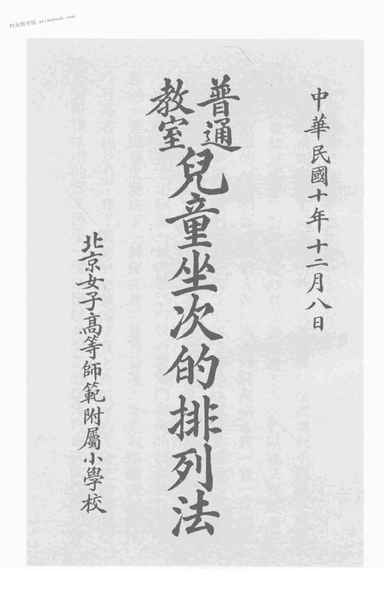 中華民國十年十二月八日
普通
教室
兒童坐次的排列法
北京女子高等師範附屬小學校